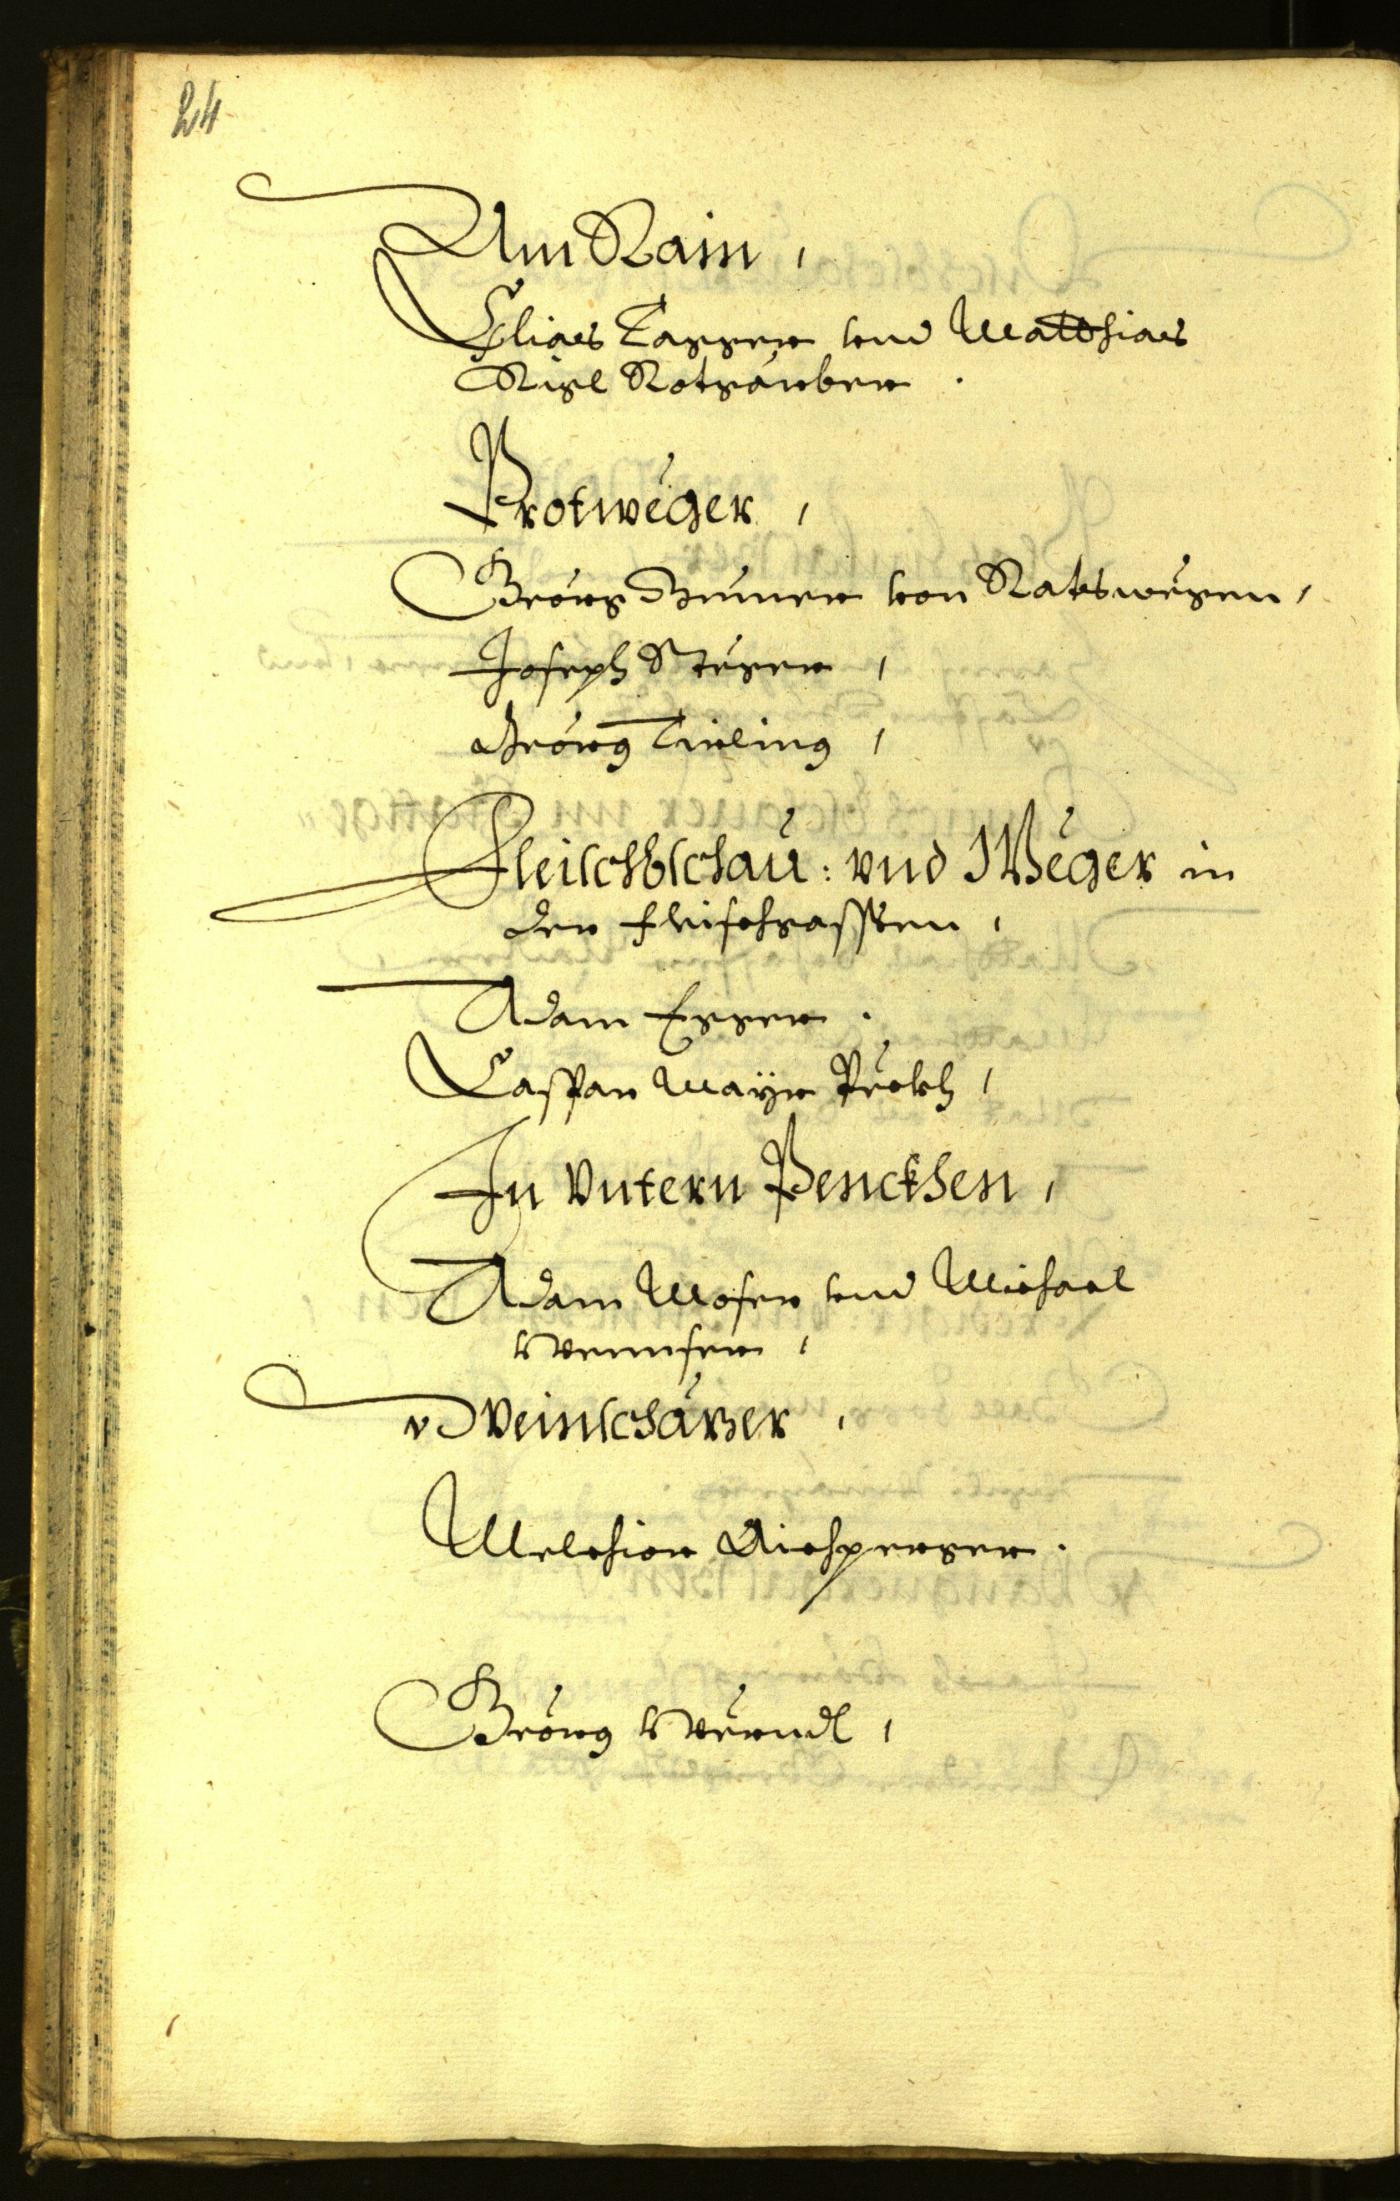 24
Am Rain,
Elias Tagger vnd Matthias
Rigl Rotgärber.
Brotweger,
Geörg Zimer von Ratswegen,
Joseph Steger,
Geörg Tirling,
Fleischbschau: vnd Weger in
der fleischgassen,
Adam Egger.
Caspar Mayr Peckh,
In Vntern Penckhen,
Adam Moser vnd Michael
Weinschäzer,
Melchior Aichperger.
Geörg Wërndl,